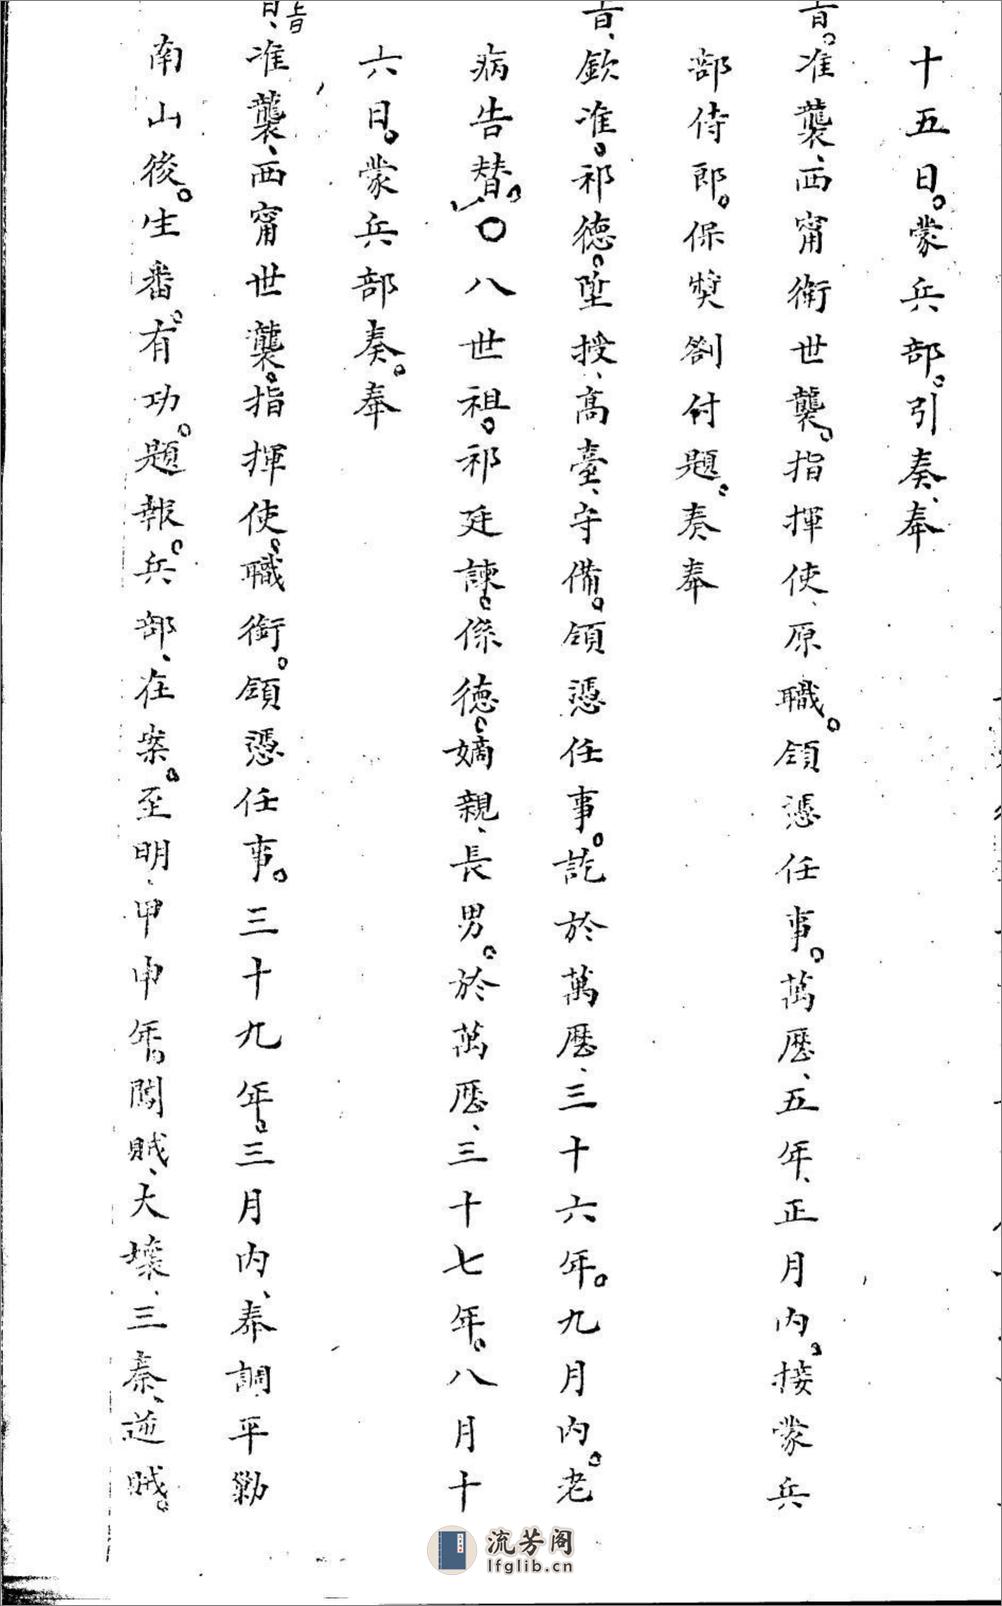 十五日。蒙兵部。引奏、奉
旨。准襲、西甯衛世襲。指揮使、原職。領憑任事。萬曆、五年、正月內。接蒙兵
部侍郎。保獎劄付題。奏奉
旨、欽准。祁德。陞授、高臺、守備。領憑任事。訖於萬曆、三十六年。九月內。老
病告替。〇八世祖。祁廷諫。係德。嫡親、長男。於萬曆、三十七年。八月十
六日。蒙兵部奏。奉
旨、准襲、西甯世襲。指揮使。職銜。領憑任事。三十九年。三月內、奉調平勦
南山後。生番。有功。題報。兵部、在案。至明、甲申年。闖賊、大壞、三秦、逆賊。
流芳阁
lfglib.cn